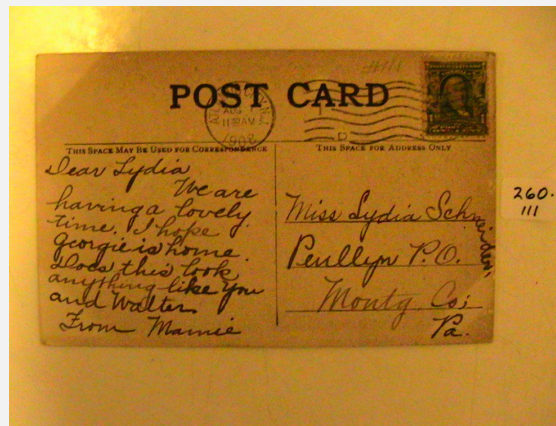 #111
POST CARD
AUG
11 30 AM
1908
THIS SPACE MAY BE USED FOR CORRESPONDENCE
THIS SPACE FOR ADDRESS ONLY
Dear Lydia
We are
having a lovely
time. I hope
Georgie is home.
Does this look
anything like you
and Walter
From Mamie
Miss Lydia Schneider,
Penllyn P.O.
Montg. Co;
Pa.
260.
111